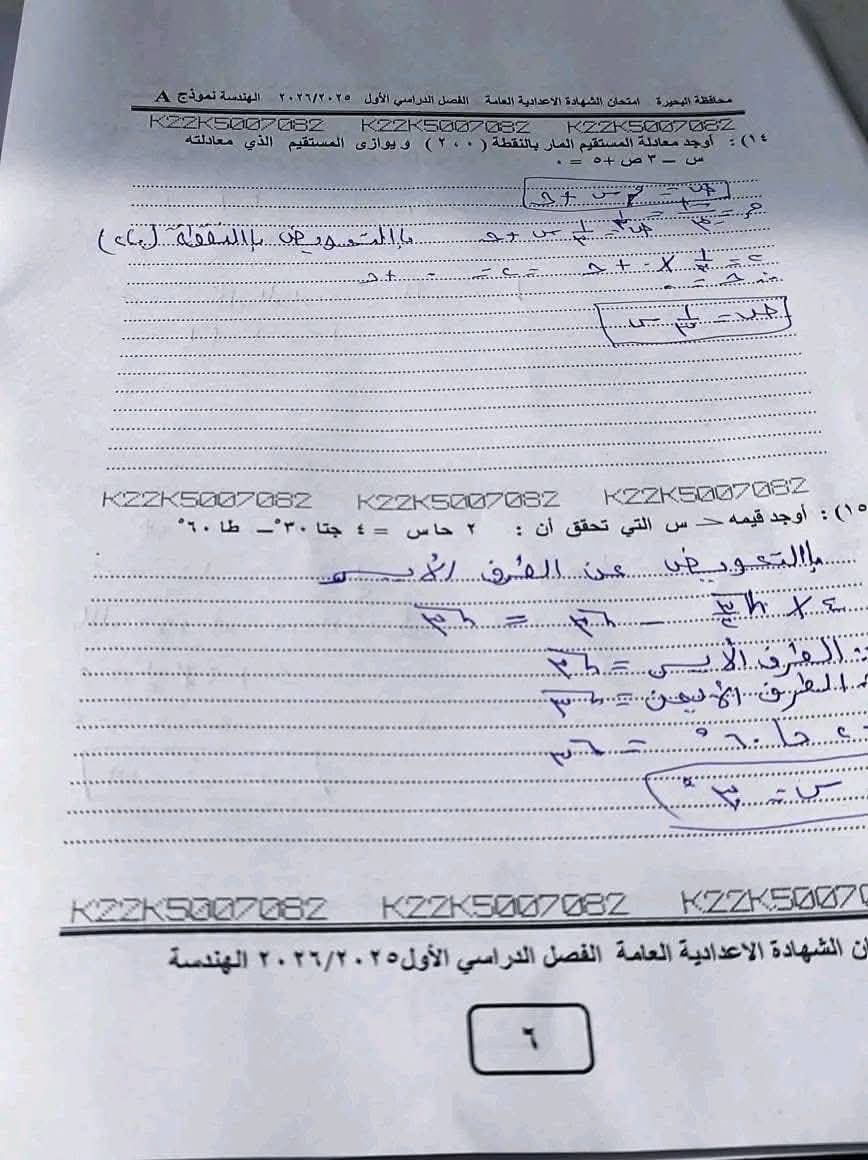 محافظة البحيرة امتحان الشهادة الاعدادية العامة الفصل الدراسي الأول ٢٠٢٦/٢٠٢٥ الهندسة نموذج A
K22K5007082 K22K5007082 K22K5007082
١٤): أوجد معادلة المستقيم المار بالنقطة (٢،٠) و يوازى المستقيم الذي معادلته
س – ٣ ص + ٥ = ٠
ص = م س + حـ
ص = ١/٣ س + حـ بالتعويض بالنقطة
٢ = ١/٣ × ٠ + حـ
ص = ١/٣ س
K22K5007082 K22K5007082 K22K5007082
١٥): أوجد قيمه > س التي تحقق أن : ٢ حاس = ٤ جتا ٣٠° – طا ٦٠°
بالتعويض عن الطرف الأيسر
٤ × √٣/٢ – √٣ = √٣
الطرف الأيسر = √٣
الطرف الأيمن = √٣
٢ حا ٦٠° = √٣
K22K5007082 K22K5007082 K22K50070
ان الشهادة الاعدادية العامة الفصل الدراسي الأول ٢٠٢٦/٢٠٢٥ الهندسة
٦